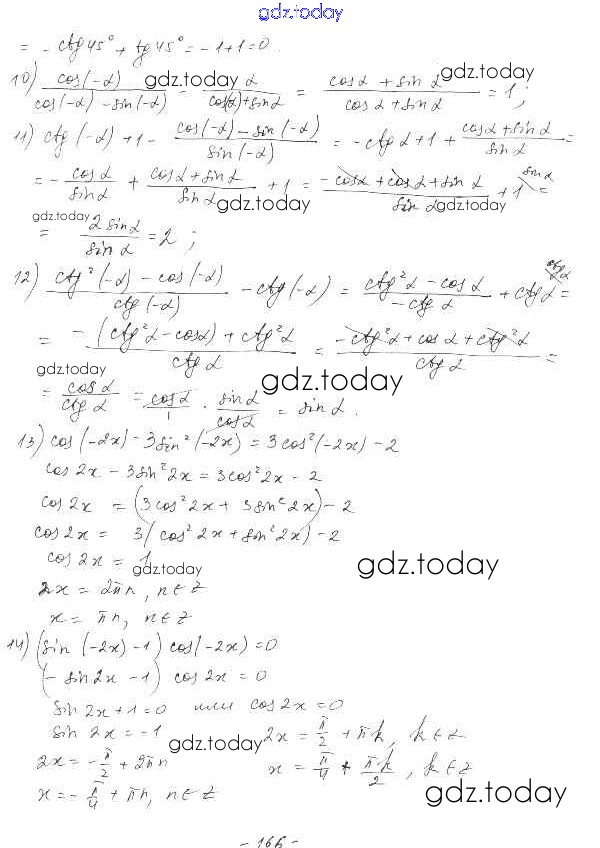 gdz.today
= - ctg 45° + tg 45° = -1+1=0.
10) cos(-α) / (cos(-α) - sin(-α)) - α / (cos(α)+sin α) = (cos α + sin α) / (cos α + sin α) = 1 ;
gdz.today gdz.today
11) ctg (-α) + 1 - (cos(-α) - sin(-α)) / sin(-α) = - ctg α + 1 + (cos α + sin α) / sin α =
= - cos α / sin α + (cos α + sin α) / sin α + 1 = (- cos α + cos α + sin α) / sin α + 1 \ sin α =
gdz.today gdz.today gdz.today
= 2 sin α / sin α = 2 ;
12) (ctg² (-α) - cos (-α)) / ctg (-α) - ctg (-α) = (ctg² α - cos α) / - ctg α + ctg α \ ctg α =
= (- (ctg² α - cos α) + ctg² α) / ctg α = (- ctg² α + cos α + ctg² α) / ctg α =
gdz.today
= cos α / ctg α = cos α / 1 · sin α / cos α = sin α .
gdz.today
13) cos (-2x) - 3 sin² (-2x) = 3 cos² (-2x) - 2
cos 2x - 3 sin² 2x = 3 cos² 2x - 2
cos 2x = (3 cos² 2x + 3 sin² 2x) - 2
cos 2x = 3 (cos² 2x + sin² 2x) - 2
cos 2x = 1
gdz.today gdz.today
2x = 2πn, n ∈ Z
x = πn, n ∈ Z
14) (sin (-2x) - 1) cos(-2x) = 0
(- sin 2x - 1) cos 2x = 0
sin 2x + 1 = 0 или cos 2x = 0
sin 2x = -1 2x = π/2 + πk, k ∈ Z
gdz.today
2x = - π/2 + 2πn x = π/4 + πk/2, k ∈ Z
x = - π/4 + πn, n ∈ Z
gdz.today
- 166 -